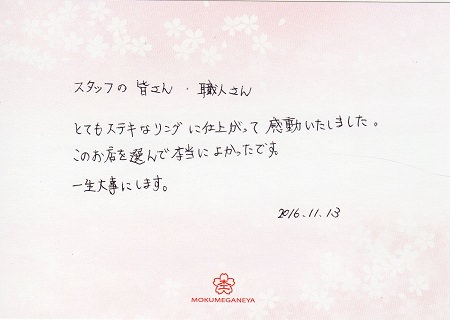 スタッフの皆さん・職人さん
とてもステキなリングに仕上がって感動いたしました。
このお店を選んで本当によかったです。
一生大事にします。
2016.11.13
MOKUMEGANEYA